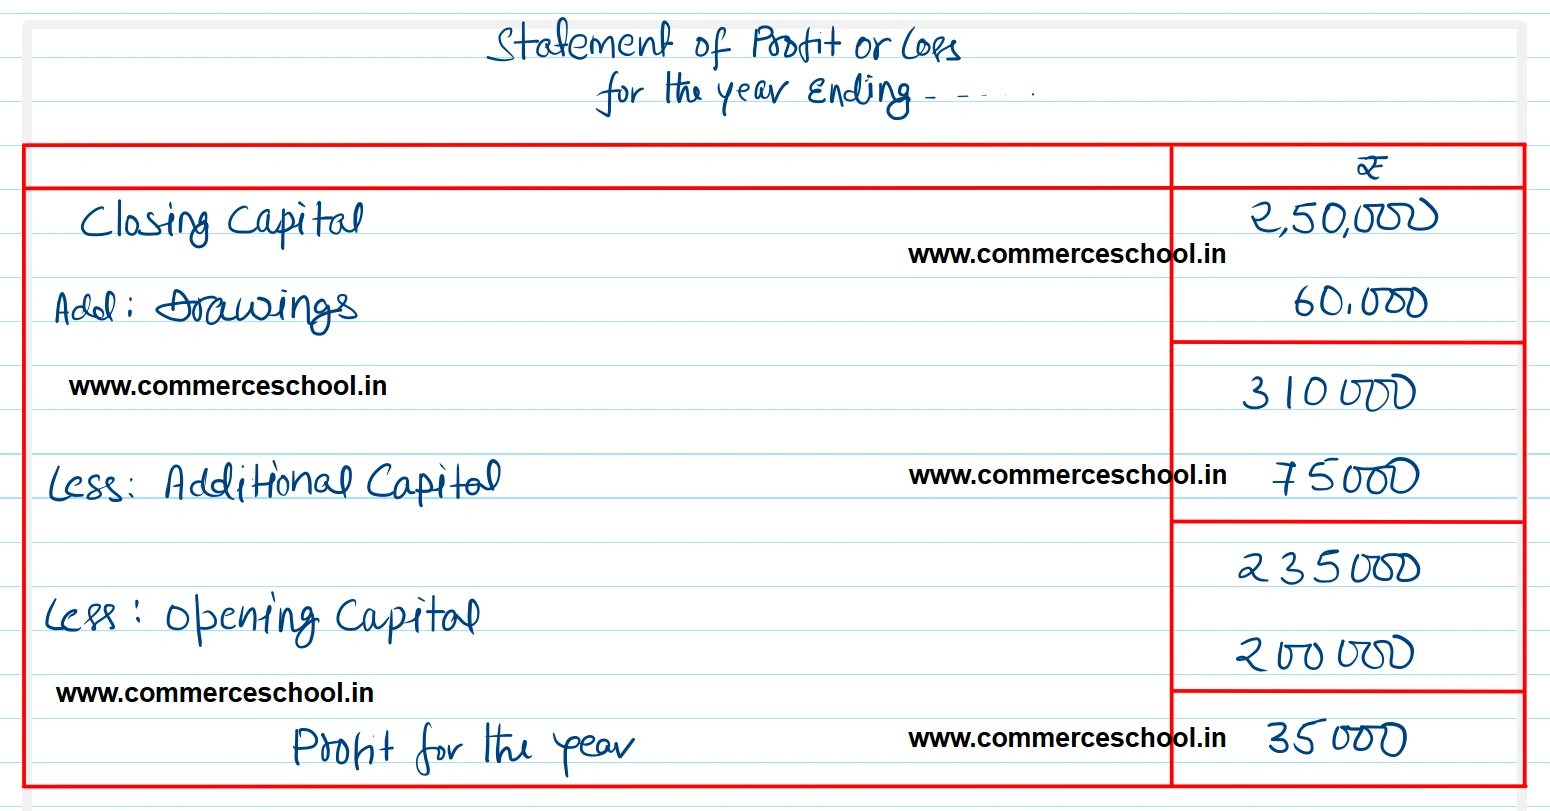 Statement of Profit or Loss
for the year Ending - - - - - -
₹
Closing Capital 2,50,000
www.commerceschool.in
Add: Drawings 60,000
www.commerceschool.in 310000
Less: Additional Capital www.commerceschool.in 75000
235000
Less: Opening Capital
200000
www.commerceschool.in
Profit for the year www.commerceschool.in 35000